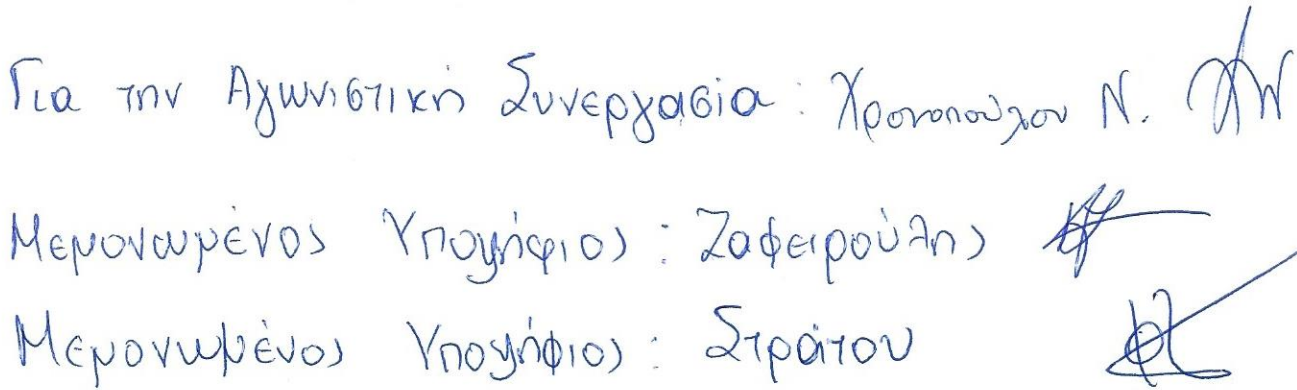 Για την Αγωνιστική Συνεργασία: Χρονοπούλου Ν.
Μεμονωμένος Υποψήφιος: Ζαφειρούλης
Μεμονωμένος Υποψήφιος: Στράτου